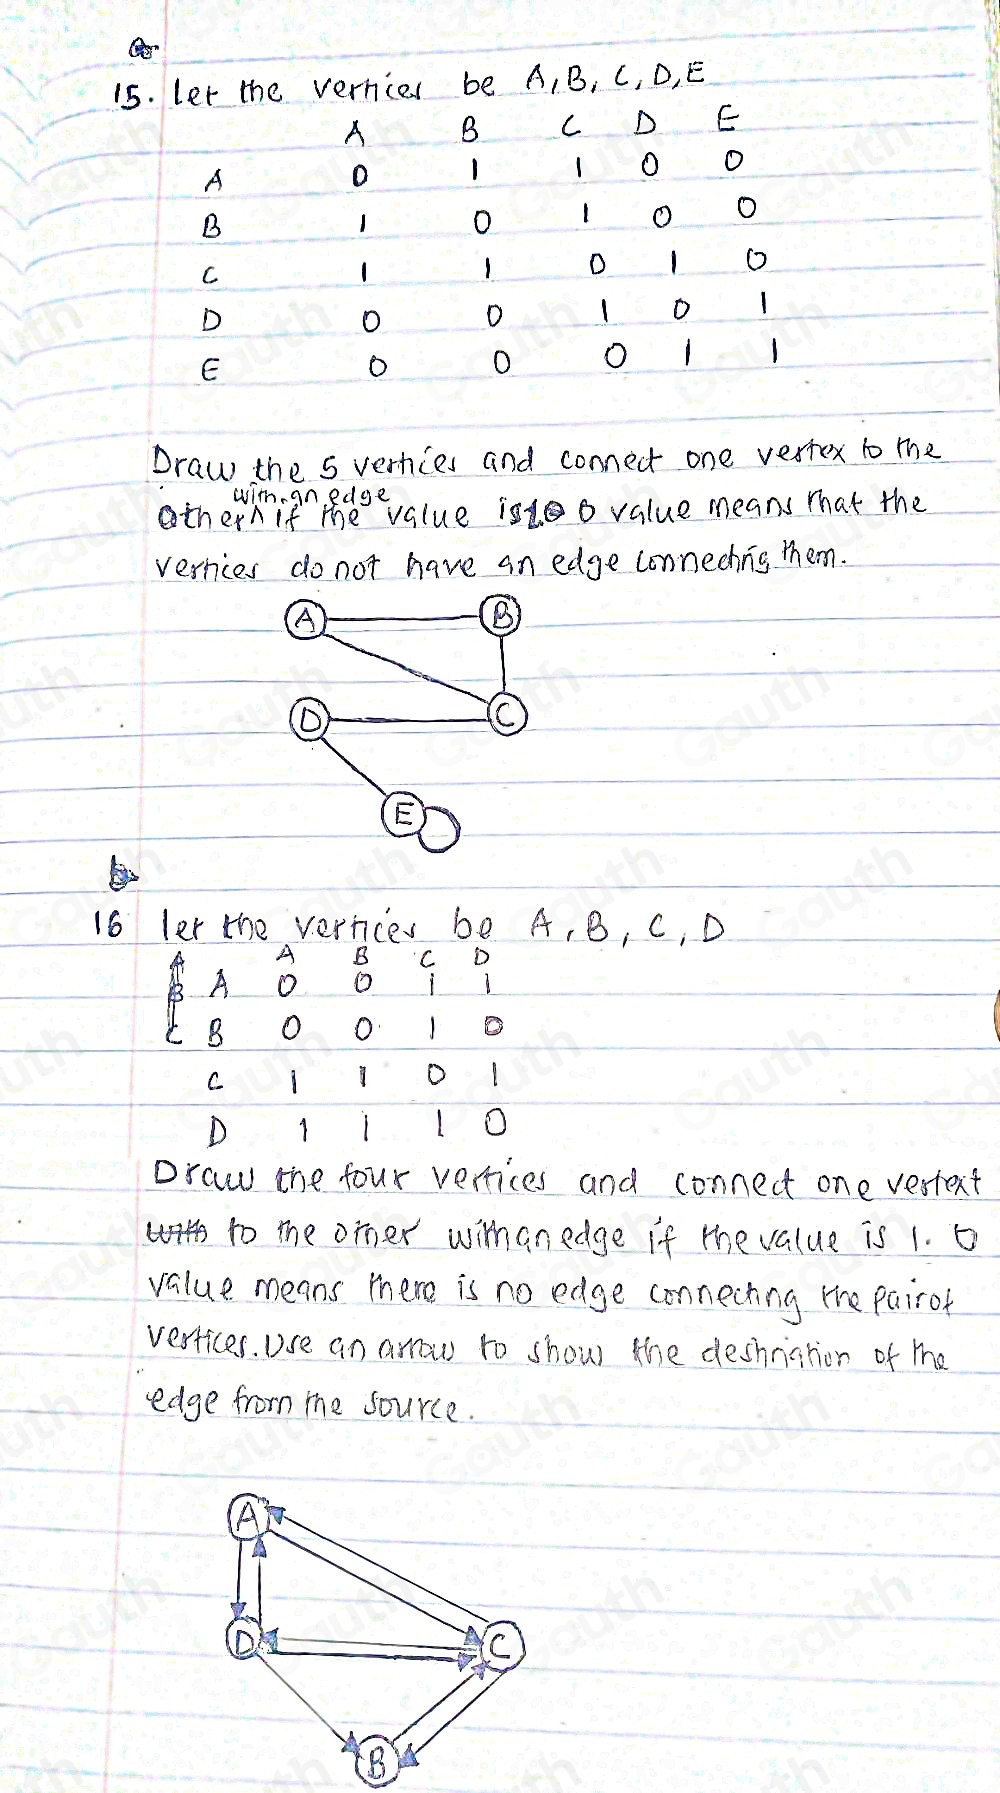 15. Let the vertices be A, B, C, D, E
A B C D E
A 0 1 1 0 0
B 1 0 1 0 0
C 1 1 0 1 0
D 0 0 1 0 1
E 0 0 0 1 1
Draw the 5 vertices and connect one vertex to the
with an edge
other ^ if the value is 1 0 value means that the
vertices do not have an edge connecting them.
A B
D C
E
b.
16 let the vertices be A, B, C, D
A B C D
A 0 0 1 1
B 0 0 1 0
C 1 1 0 1
D 1 1 1 0
Draw the four vertices and connect one vertext
with to the other with an edge if the value is 1. 0
value means there is no edge connecting the pair of
vertices. Use an arrow to show the destination of the
edge from the source.
A
D C
B